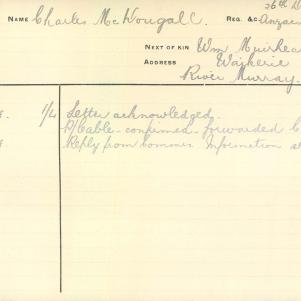 26th
NAME Charles McDougall. REG. &C. Anzac
NEXT OF KIN Wm Muirhead
ADDRESS Waikerie
River Murray.
1/4 Letter acknowledged.
D/Cable - confirmed - forwarded
Reply from commrs. Information